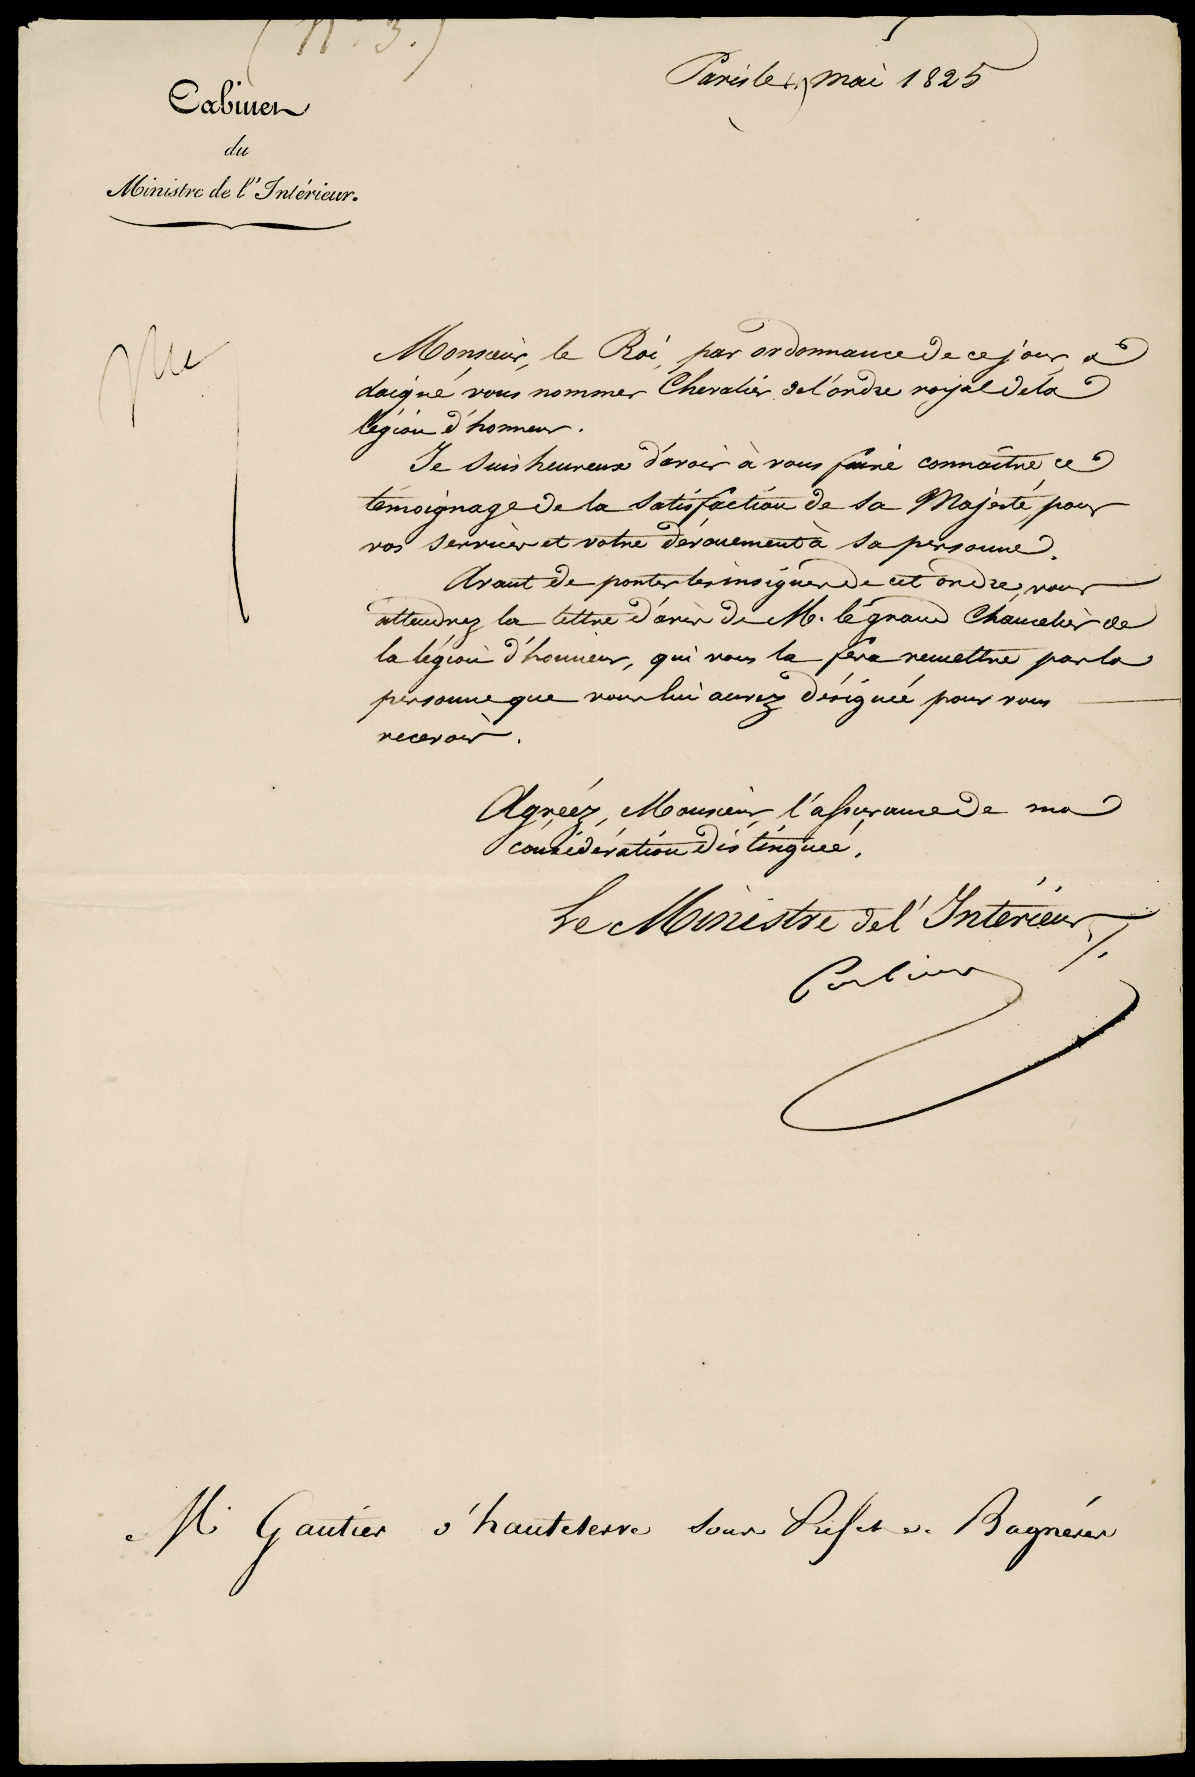 (N° 3.)
Paris le mai 1825
Cabinet
du
Ministre de l'Intérieur.
Monsieur, le Roi, par ordonnance de ce jour, a
daigné vous nommer Chevalier de l'ordre royal de la
légion d'honneur.
Je suis heureux d'avoir à vous faire connaître ce
témoignage de la satisfaction de sa Majesté, pour
vos services et votre dévouement à sa personne.
Avant de porter les insignes de cet ordre, vous
attendrez la lettre d'avis de M. le grand Chancelier de
la légion d'honneur, qui vous la fera remettre par la
personne que vous lui aurez désignée pour vous
recevoir.
Agréez, Monsieur, l'assurance de ma
considération distinguée.
Le Ministre de l'Intérieur
Corbière
M. Gautier d'hauteserve sous Préfet de Bagnères